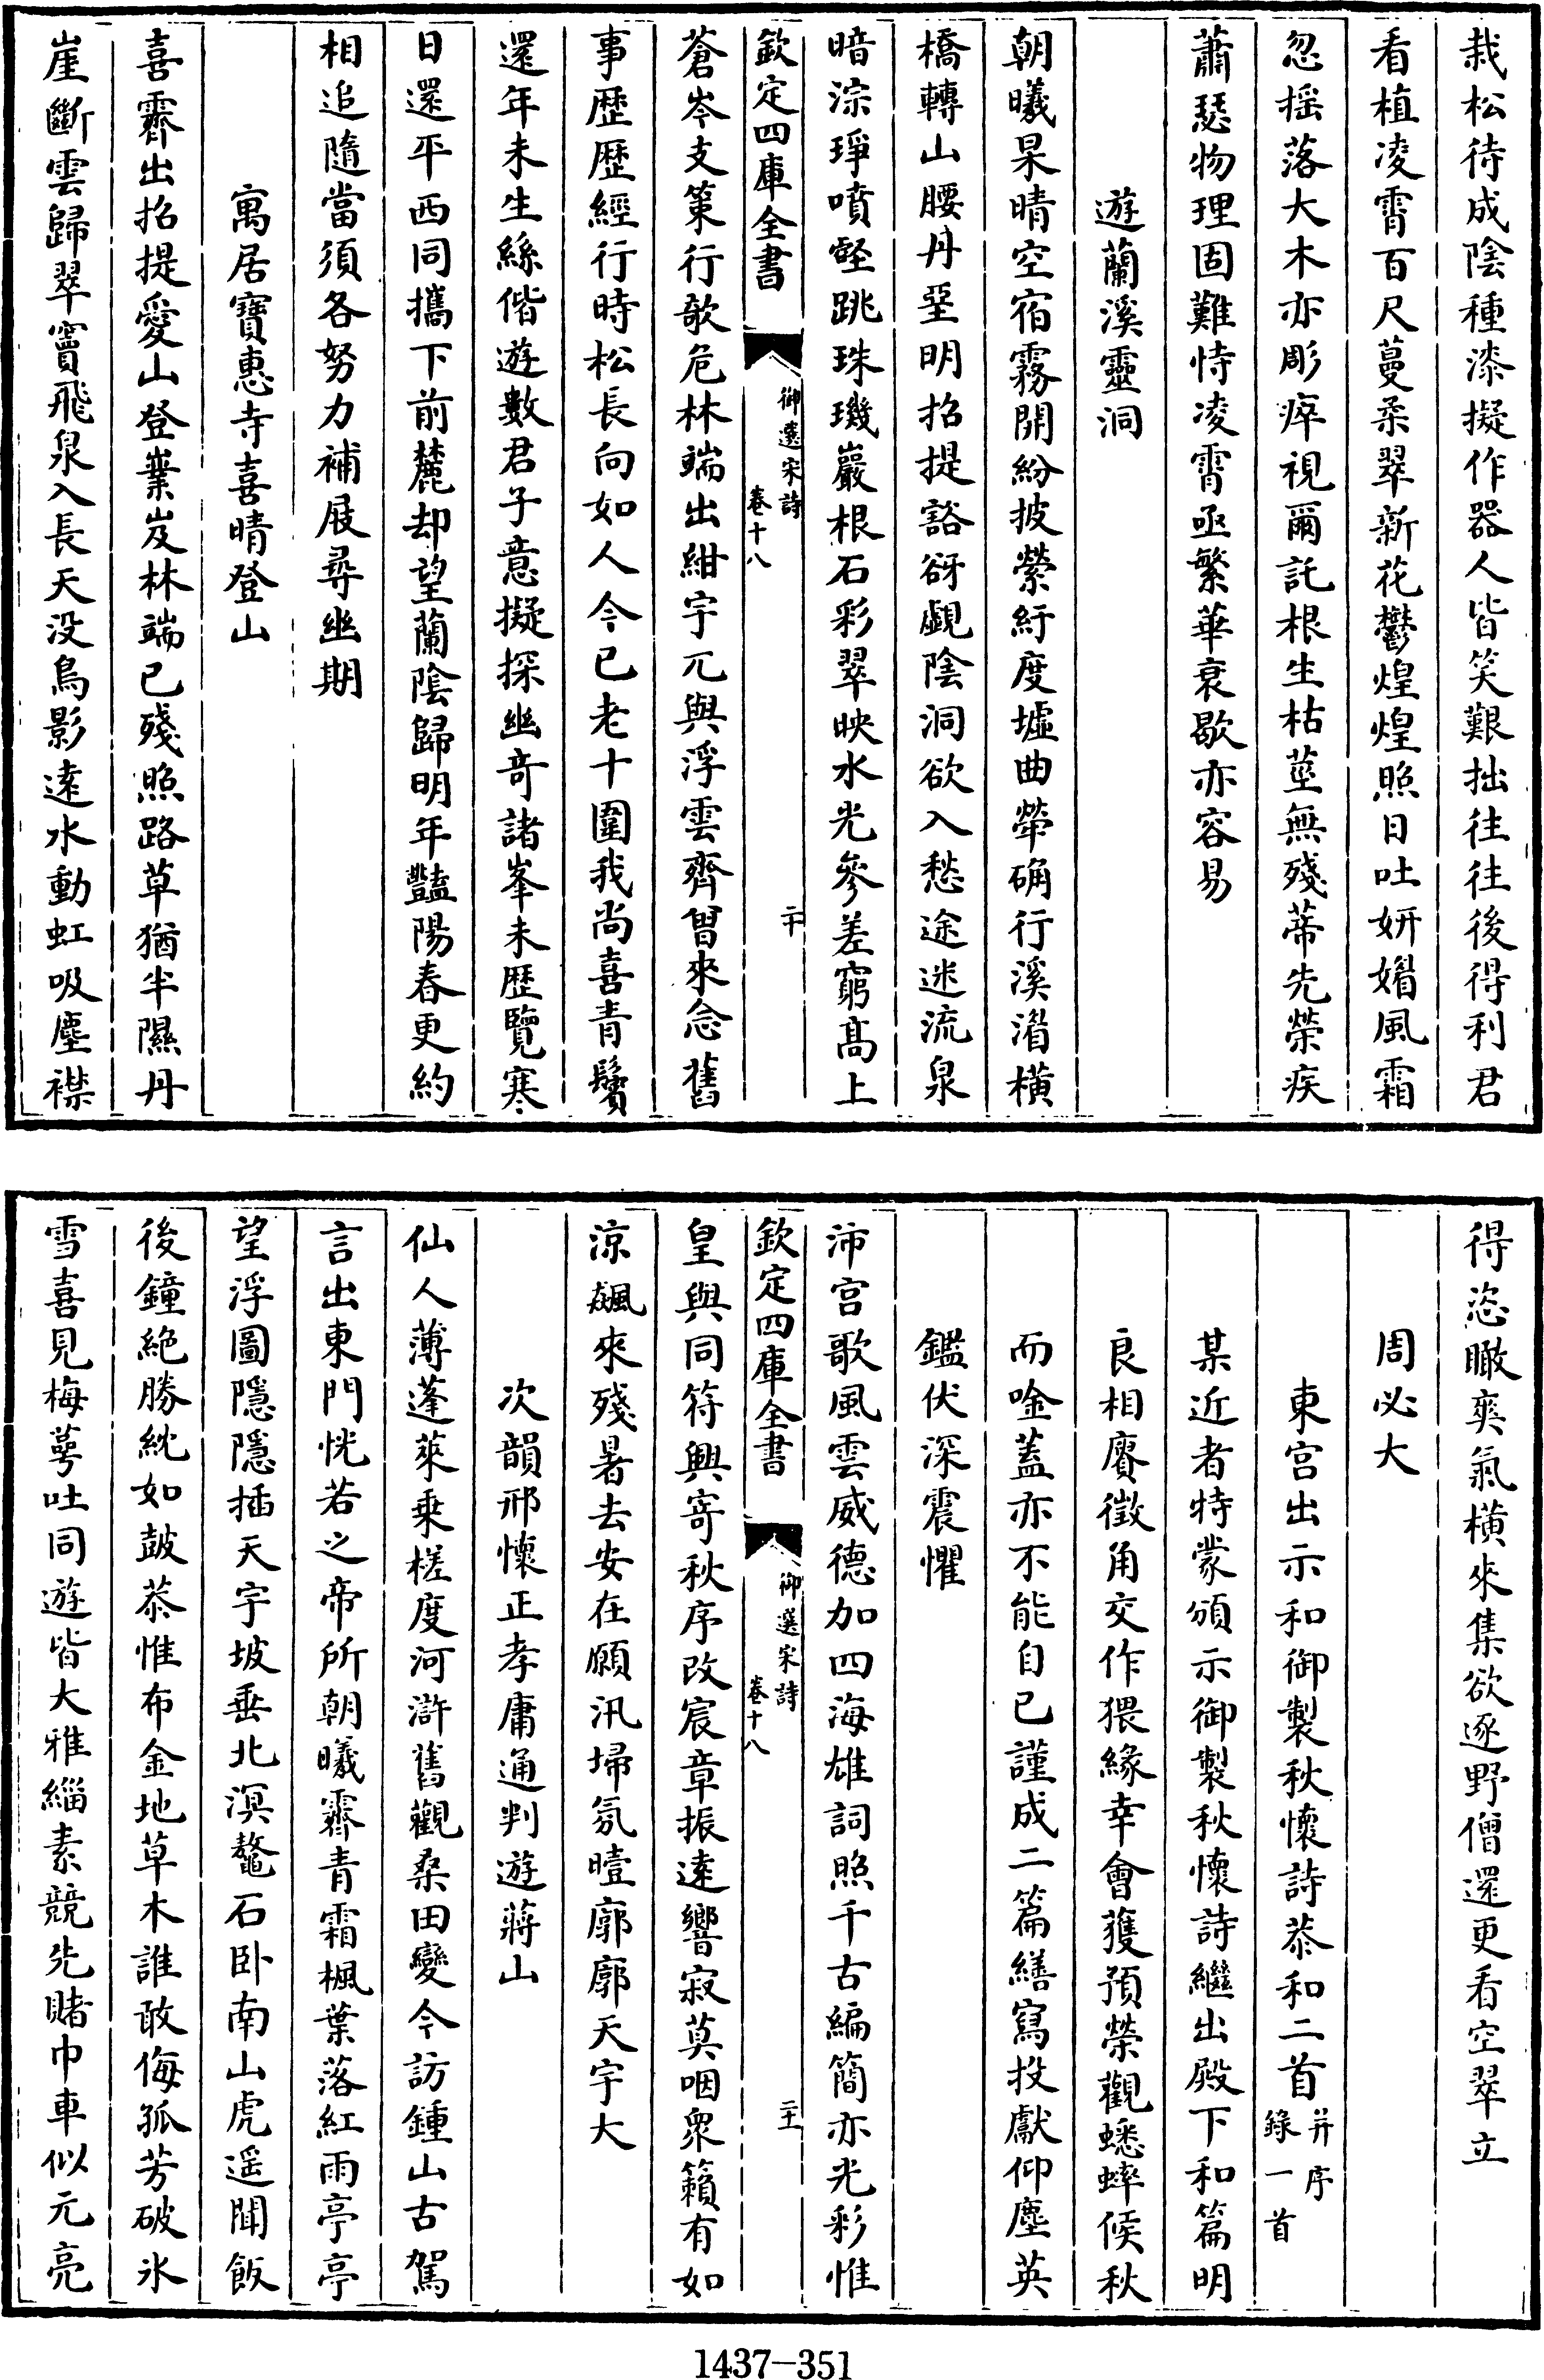 栽松待成陰種漆擬作器人皆笑艱拙往往後得利君
看植凌霄百尺蔓柔翠新花鬱煌煌照日吐妍媚風霜
忽揺落大木亦彫瘁視爾託根生枯莖無殘蒂先榮疾
蕭瑟物理固難恃凌霄亟繁華衰歇亦容易
遊蘭溪靈洞
朝曦杲晴空宿霧開紛披縈紆度墟曲犖确行溪湄橫
橋轉山腰丹堊明招提谽谺覷陰洞欲入愁途迷流泉
暗淙琤噴壑跳珠璣巖根石彩翠映水光參差窮髙上
欽定四庫全書
御選宋詩
卷十八
二十
蒼岑支策行欹危林端出紺宇兀與浮雲齊曾來念舊
事歷歷經行時松長向如人今已老十圍我尚喜青鬢
還年未生絲偕遊數君子意擬探幽竒諸峯未歷覽寒
日還平西同攜下前麓却望蘭陰歸明年豔陽春更約
相追隨當須各努力補屐尋幽期
寓居寶惠寺喜晴登山
喜霽出招提愛山登嶪岌林端已殘照路草猶半隰丹
崖斷雲歸翠竇飛泉入長天没鳥影逺水動虹吸塵襟
得恣瞰爽氣橫來集欲逐野僧還更看空翠立
周必大
東宫出示和御製秋懷詩恭和二首并序錄一首
某近者特蒙頒示御製秋懷詩繼出殿下和篇明
良相賡徵角交作猥緣幸會獲預榮觀蟋蟀候秋
而唫蓋亦不能自已謹成二篇繕寫投獻仰塵英
鑑伏深震懼
沛宫歌風雲威德加四海雄詞照千古編簡亦光彩惟
欽定四庫全書
御選宋詩
卷十八
二十一
皇與同符興寄秋序改宸章振逺響寂莫咽衆籟有如
涼飈來殘暑去安在願汛埽氛曀廓廓天宇大
次韻邢懷正孝庸通判遊蔣山
仙人薄蓬萊乗槎度河滸舊觀桑田變今訪鍾山古駕
言出東門恍若之帝所朝曦霽青霜楓葉落紅雨亭亭
望浮圖隱隱插天宇坡垂北溟鼇石卧南山虎遥聞飯
後鐘絶勝紞如鼓恭惟布金地草木誰敢侮孤芳破氷
雪喜見梅萼吐同遊皆大雅緇素競先賭巾車似元亮
1437—351